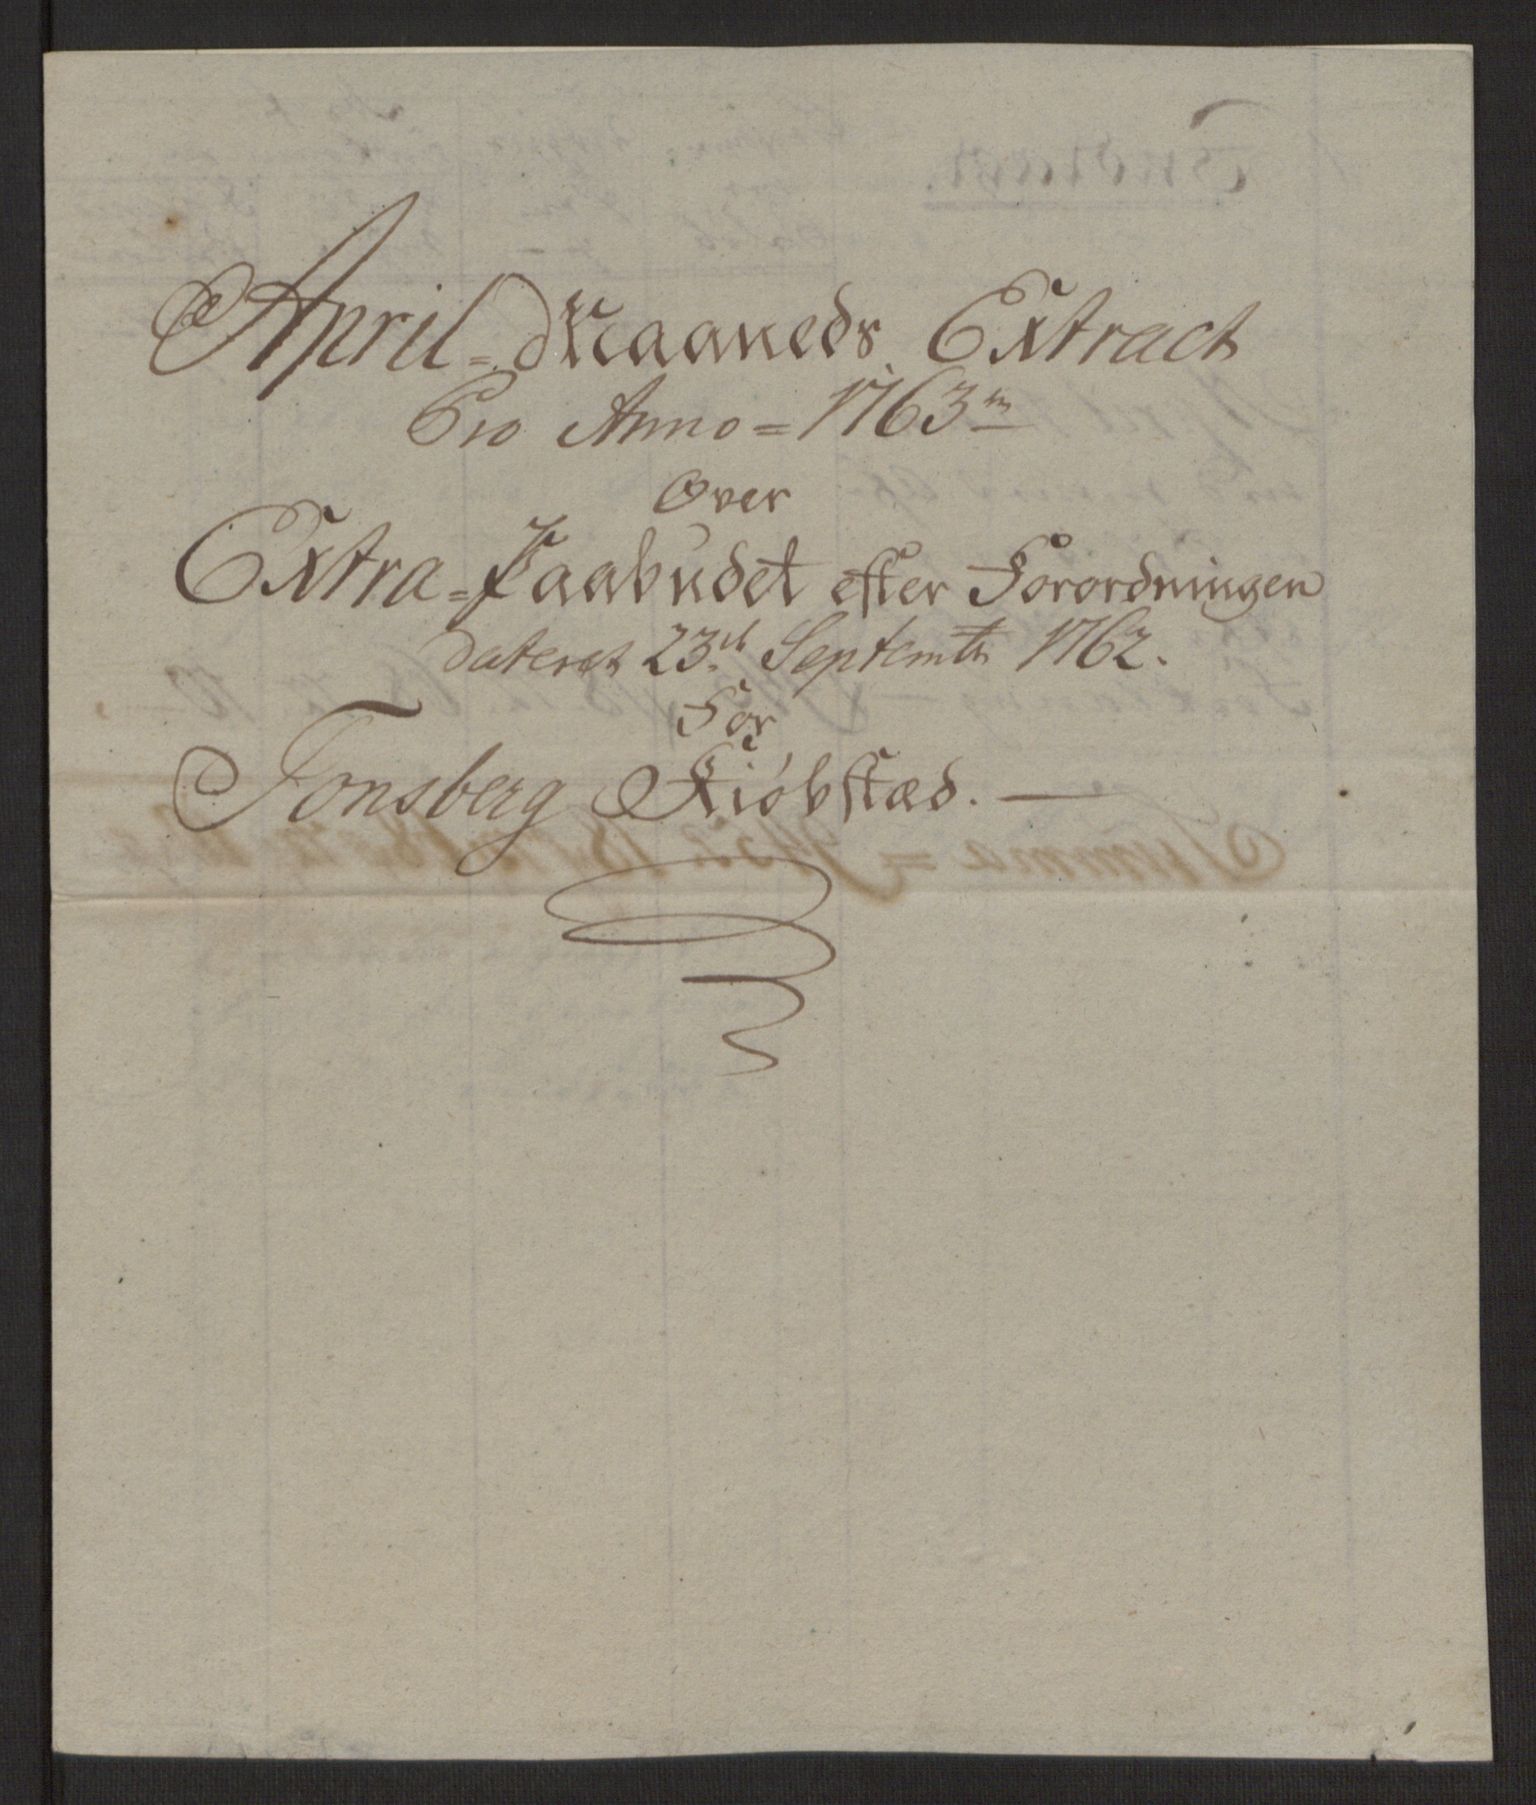 April=Maaneds Extract
Pro Anno=1763
Over
Extra=Paabudet efter Forordningen
dateret 23 Septembr 1762.
For
Tonsberg Kiøbstæd. —